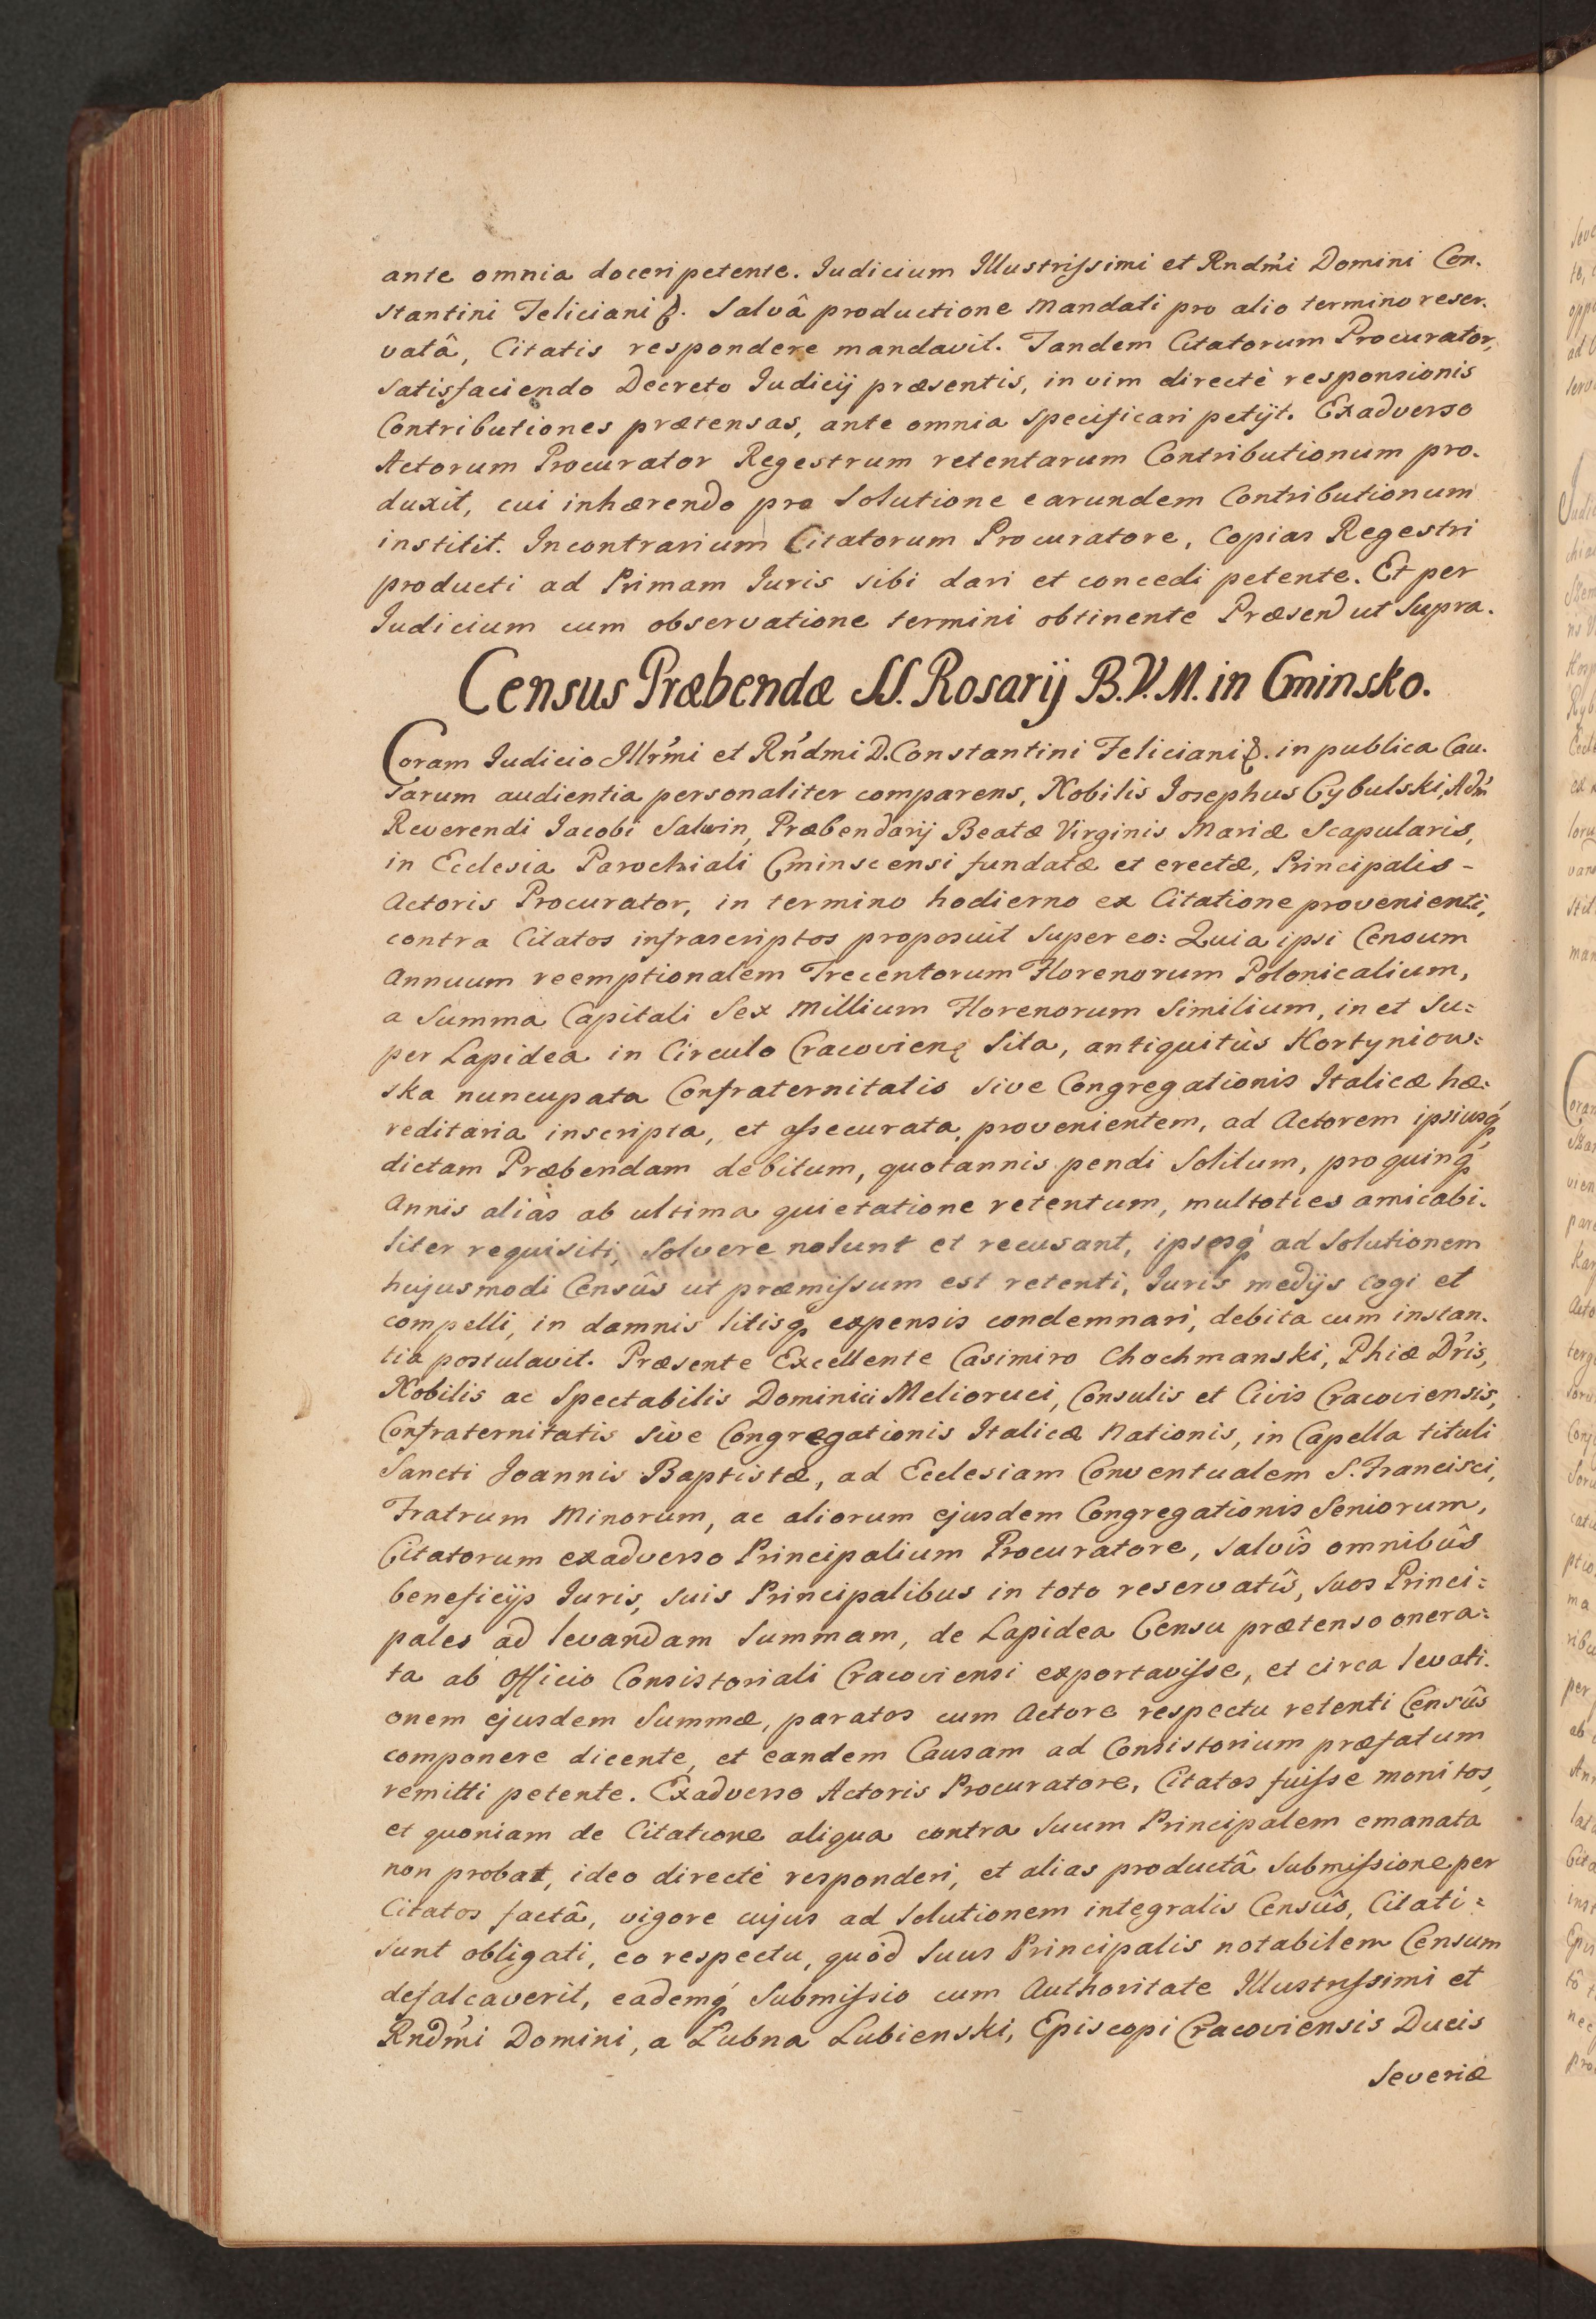 ante omnia doceri petente. Iudicium Illustrissimi et Rndmi Domini Con.
stantini Feliciani &. Salvâ productione Mandati pro alio termino reser.
vatâ, Citatis respondere mandavit. Tandem Citatorum Procurator,
satisfaciendo Decreto Iudicij præsentis, in vim directè responsionis
Contributiones prætensas, ante omnia specificari petijt. Exadverso
Actorum Procurator Regestrum retentarum Contributionum pro.
duxit, cui inhærendo pro Solutione earundem Contributionum
institit. Incontrarium Citatorum Procuratore, Copias Regestri
producti ad Primam Iuris sibi dari et concedi petente. Et per
Iudicium cum observatione termini obtinente Præsen ut Supra.
Census Præbendæ SS. Rosarij B.V.M. in Cminsko.
Coram Iudicio Illrmi et Rndmi D. Constantini Feliciani &. in publica Cau.
sarum audientia personaliter comparens, Nobilis Iosephus Cybulski, Adm
Reverendi Iacobi Salwin, Præbendarij Beatæ Virginis Mariæ Scapularis,
in Ecclesia Parochiali Cminscensi fundatæ et erectæ, Principalis -
Actoris Procurator, in termino hodierno ex Citatione provenienti,
contra Citatos infrascriptos proposuit super eo: Quia ipsi Censum
Annuum reemptionalem Trecentorum Florenorum Polonicalium,
a Summa Capitali Sex Millium Florenorum Similium, in et Su=
per Lapidea in Circulo Cracovien Sita, antiquitùs Hortyniow=
ska nuncupata Confraternitatis sive Congregationis Italicæ hæ=
reditaria inscripta, et assecurata, provenientem, ad Actorem ipsiusq
dictam Præbendam debitum, quotannis pendi Solitum, pro quinq
Annis aliàs ab ultima quietatione retentum, multoties amicabi.
liter requisiti, Solvere nolunt et recusant, ipsosq ad Solutionem
hujusmodi Censûs ut præmissum est retenti, Iuris medijs cogi et
compelli, in damnis litisq expensis condemnari, debita cum instan.
tia postulavit. Præsente Excellente Casimiro Chochmanski, Phiæ Dris,
Nobilis ac Spectabilis Dominici Melioruci, Consulis et Civis Cracoviensis,
Confraternitatis sive Congregationis Italicæ Nationis, in Capella tituli
Sancti Joannis Baptistæ, ad Ecclesiam Conventualem S. Francisci,
Fratrum Minorum, ac aliorum ejusdem Congregationis Seniorum,
Citatorum exadverso Principalium Procuratore, salvîs omnibûs
beneficijs Iuris, suis Principalibus in toto reservatîs, suos Princi=
pales ad levandam Summam, de Lapidea Censu prætenso onera=
ta ab Officio Consistoriali Cracoviensi exportavisse, et circa levati.
onem ejusdem Summæ, paratos cum Actore respectu retenti Censûs
componere dicente, et eandem Causam ad Consistorium præfatum
remitti petente. Exadverso Actoris Procuratore, Citatos fuisse monitos,
et quoniam de Citatione aliqua contra Suum Principalem emanata
non probat, ideo directè responderi, et alias productâ Submissione per
Citatos factâ, vigore cujus ad Solutionem integralis Censûs, Citati=
sunt obligati, eo respectu, quòd Suus Principalis notabilem Censum
defalcaverit, eademq Submissio cum Authoritate Illustrissimi et
Rndmi Domini, a Łubna Łubienski, Episcopi Cracoviensis Ducis
Severiæ